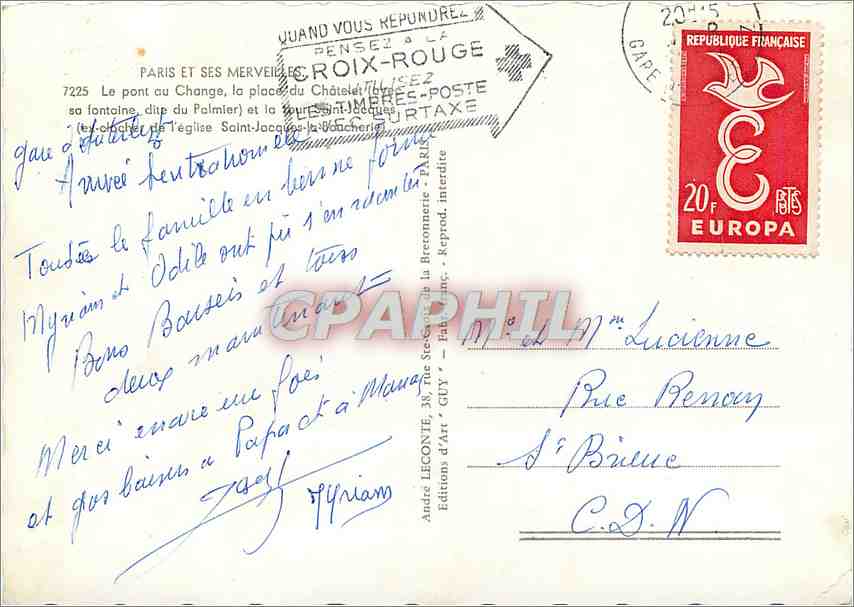 QUAND VOUS REPONDREZ
PENSEZ A LA
CROIX-ROUGE
UTILISEZ
LES TIMBRES-POSTE
AVEC SURTAXE
GARE
REPUBLIQUE FRANÇAISE
E
20F
POSTES
EUROPA
PARIS ET SES MERVEILLES
7225 Le pont au Change, la place du Châtelet (avec
sa fontaine, dite du Palmier) et la tour Saint-Jacques
(ex-clocher de l'église Saint-Jacques-la-Boucherie)
gare d'Austerlitz
Arrivée
Toute la famille en bonne forme
Myriam et Odile ont pu s'en
Bons Baisers et tous
deux maintenant
Merci encore une fois
et gros baisers a Papa et à Maman
Myriam
André LECONTE, 38, rue Ste-Croix de la Bretonnerie - PARIS
Editions d'Art "GUY" — Fabr. Franç. - Reprod. interdite
CPAPHIL
Mr et Mme Lucienne
Rue Renan
St Brieuc
C.D.N